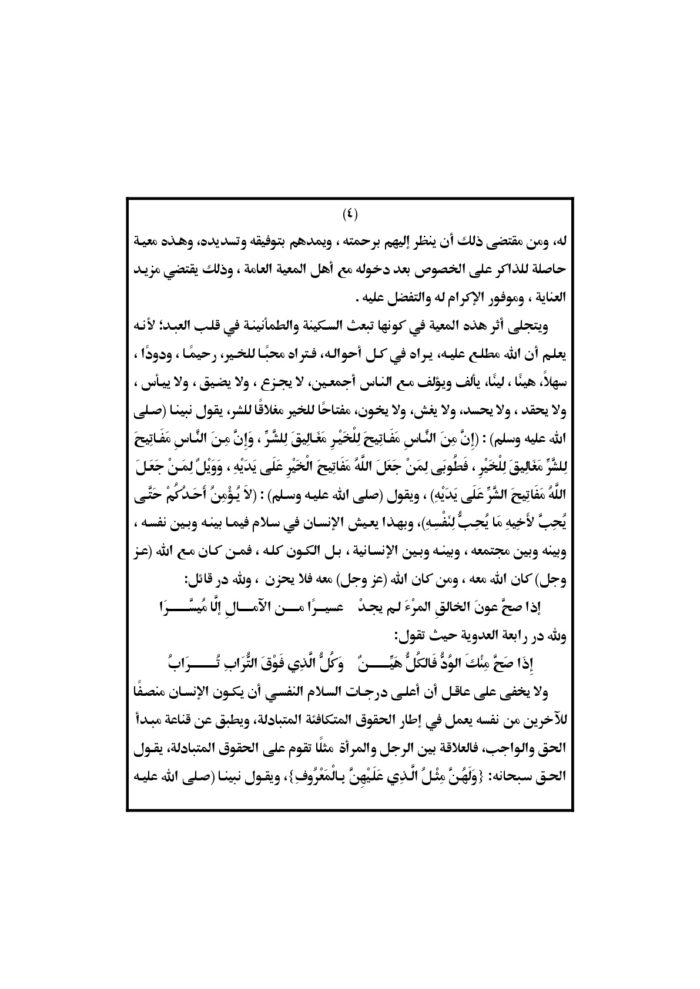 (٤)
له، ومن مقتضى ذلك أن ينظر إليهم برحمته ، ويمدهم بتوفيقه وتسديده، وهذه معية
حاصلة للذاكر على الخصوص بعد دخوله مع أهل المعية العامة ، وذلك يقتضي مزيد
العناية ، وموفور الإكرام له والتفضل عليه .
ويتجلى أثر هذه المعية في كونها تبعث السكينة والطمأنينة في قلب العبد؛ لأنه
يعلم أن الله مطلع عليه، يراه في كل أحواله، فتراه محبًا للخير، رحيمًا ، ودودًا ،
سهلاً، هينًا ، لينًا، يألف ويؤلف مع الناس أجمعين، لا يجزع ، ولا يضيق ، ولا ييأس ،
ولا يحقد ، ولا يحسد، ولا يغش، ولا يخون، مفتاحًا للخير مغلاقًا للشر، يقول نبينا (صلى
الله عليه وسلم) : (إِنَّ مِنَ النَّاسِ مَفَاتِيحَ لِلْخَيْرِ مَغَالِيقَ لِلشَّرِّ ، وَإِنَّ مِنَ النَّاسِ مَفَاتِيحَ
لِلشَّرِّ مَغَالِيقَ لِلْخَيْرِ ، فَطُوبَى لِمَنْ جَعَلَ اللَّهُ مَفَاتِيحَ الْخَيْرِ عَلَى يَدَيْهِ ، وَوَيْلٌ لِمَنْ جَعَلَ
اللَّهُ مَفَاتِيحَ الشَّرِّ عَلَى يَدَيْهِ) ، ويقول (صلى الله عليه وسلم) : (لاَ يُؤْمِنُ أَحَدُكُمْ حَتَّى
يُحِبَّ لأَخِيهِ مَا يُحِبُّ لِنَفْسِهِ)، وبهذا يعيش الإنسان في سلام فيما بينه وبين نفسه ،
وبينه وبين مجتمعه ، وبينه وبين الإنسانية ، بل الكون كله ، فمن كان مع الله (عز
وجل) كان الله معه ، ومن كان الله (عز وجل) معه فلا يحزن ، ولله در قائل:
إذا صحَّ عونَ الخالقِ المرْءَ لم يجدْ عسيرًا من الآمالِ إلَّا مُيسَّرَا
ولله در رابعة العدوية حيث تقول:
إِذَا صَحَّ مِنْكَ الوُدُّ فَالكُلُّ هَيِّنٌ وَكُلُّ الَّذِي فَوْقَ التُّرَابِ تُرَابُ
ولا يخفى على عاقل أن أعلى درجات السلام النفسي أن يكون الإنسان منصفًا
للآخرين من نفسه يعمل في إطار الحقوق المتكافئة المتبادلة، ويطبق عن قناعة مبدأ
الحق والواجب، فالعلاقة بين الرجل والمرأة مثلًا تقوم على الحقوق المتبادلة، يقول
الحق سبحانه: {وَلَهُنَّ مِثْلُ الَّذِي عَلَيْهِنَّ بِالْمَعْرُوفِ}، ويقول نبينا (صلى الله عليه